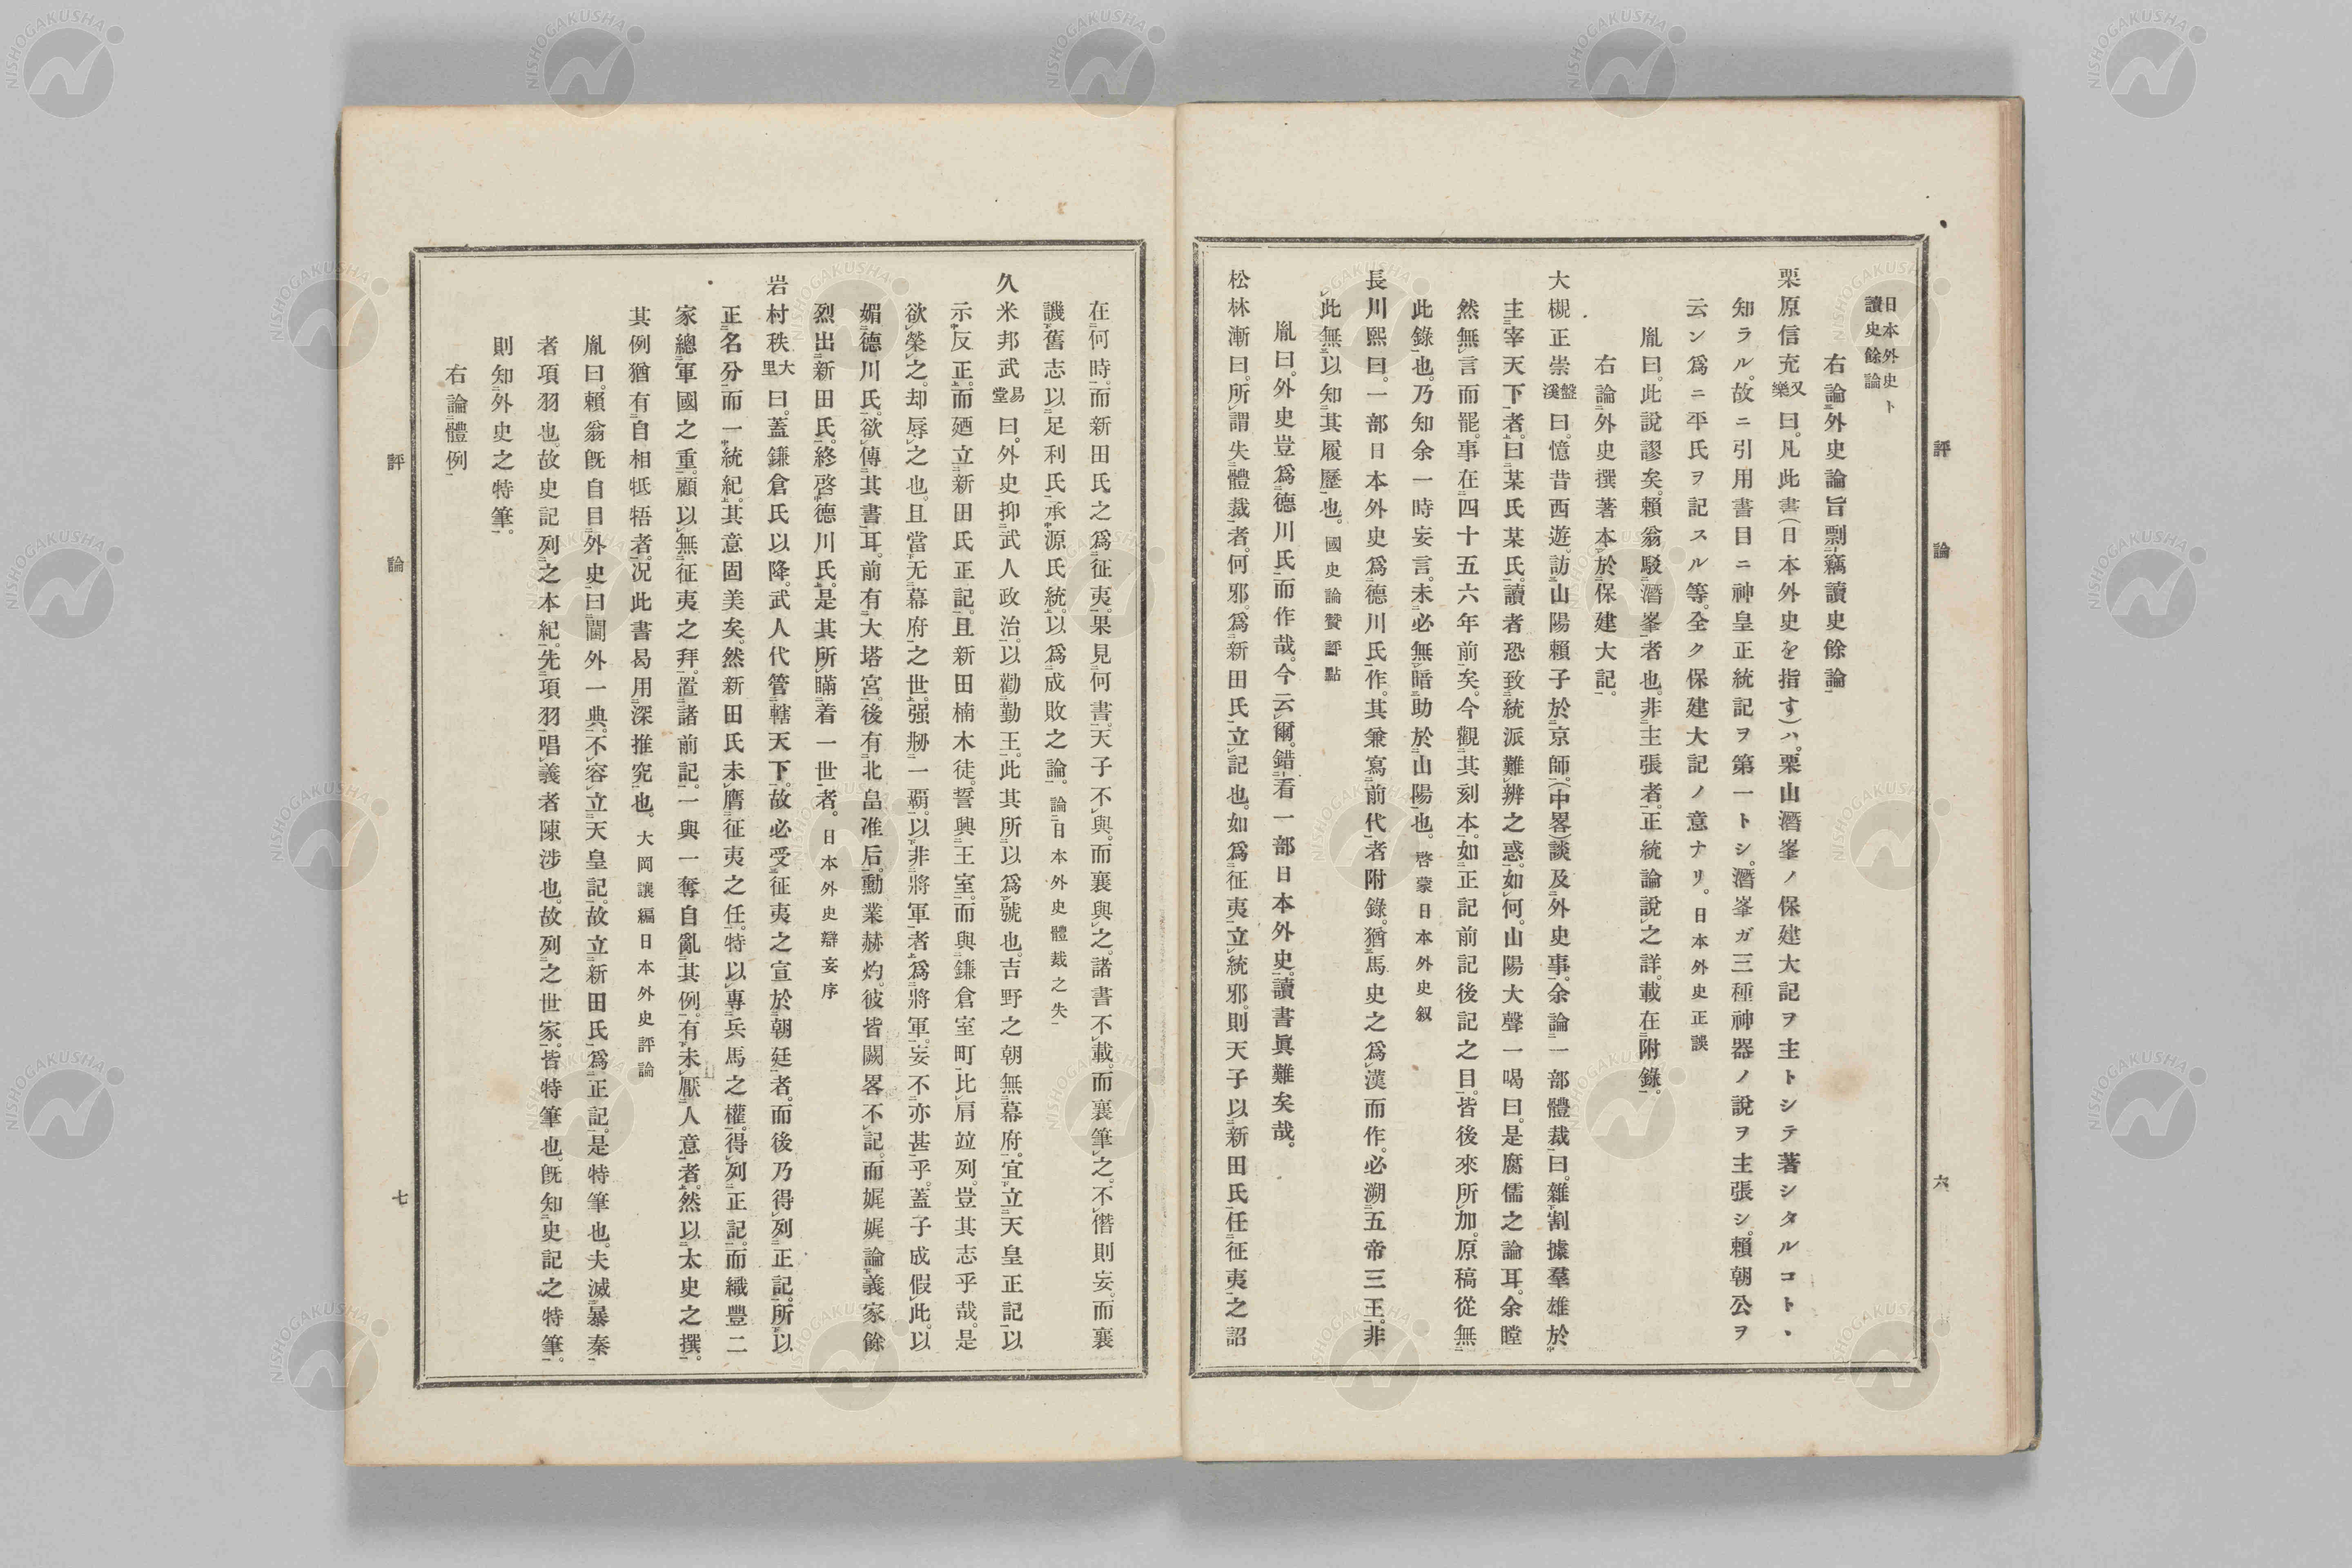 評論 六
日本外史ト
讀史餘論
右論外史論旨剽竊讀史餘論
栗原信充又樂曰。凡此書(日本外史を指す)ハ。栗山潛峯ノ保建大記ヲ主トシテ著シタルコト、
知ラル。故ニ引用書目ニ神皇正統記ヲ第一トシ。潛峯ガ三種神器ノ說ヲ主張シ。賴朝公ヲ
云ン爲ニ平氏ヲ記スル等。全ク保建大記ノ意ナリ。日本外史正誤
胤曰。此說謬矣。賴翁駁潛峯者也。非主張者。正統論說之詳。載在附錄。
右論外史撰著本於保建大記。
大槻正崇盤溪曰。憶昔西遊。訪山陽賴子於京師。(中畧)談及外史事。余論一部體裁曰。雜割據羣雄於
主宰天下者。曰某氏某氏。讀者恐致統派難辨之惑。如何。山陽大聲一喝曰。是腐儒之論耳。余瞠
然無言而罷。事在四十五六年前矣。今觀其刻本。如正記前記後記之目。皆後來所加。原稿從無
此錄也。乃知余一時妄言。未必無暗助於山陽也。啓蒙日本外史叙
長川熙曰。一部日本外史爲德川氏作。其兼寫前代者附錄。猶馬史之爲漢而作。必溯五帝三王。非
此無以知其履歷也。國史論贊評點
胤曰。外史豈爲德川氏而作哉。今云爾。錯看一部日本外史。讀書眞難矣哉。
松林漸曰。所謂失體裁者。何邪。爲新田氏立記也。如爲征夷立統邪。則天子以新田氏任征夷之詔
在何時。而新田氏之爲征夷。果見何書。天子不與。而襄與之。諸書不載。而襄筆之。不僭則妄。而襄
譏舊志以足利氏承源氏統。以爲成敗之論。論日本外史體裁之失
久米邦武易堂曰。外史抑武人政治。以勸勤王。此其所以爲號也。吉野之朝無幕府。宜立天皇正記以
示反正。而廼立新田氏正記。且新田楠木徒。誓興王室。而與鎌倉室町比肩竝列。豈其志乎哉。是
欲榮之。却辱之也。且當无幕府之世。强刱一覇。以非將軍者爲將軍。妄不亦甚乎。蓋子成假此。以
媚德川氏。欲傳其書耳。前有大塔宮。後有北畠准后。勳業赫灼。彼皆闕畧不記。而娓娓論義家餘
烈出新田氏。終啓德川氏。是其所瞞着一世者。日本外史辯妄序
岩村秩大里曰。蓋鎌倉氏以降。武人代管轄天下。故必受征夷之宣於朝廷者。而後乃得列正記。所以
正名分而一統紀。其意固美矣。然新田氏未膺征夷之任。特以專兵馬之權。得列正記。而織豐二
家總軍國之重。顧以無征夷之拜。置諸前記。一與一奪自亂其例。有未厭人意者。然以太史之撰。
其例猶有自相牴牾者。况此書曷用深推究也。大岡讓編日本外史評論
胤曰。賴翁旣自目外史。曰閫外一典。不容立天皇記。故立新田氏爲正記。是特筆也。夫滅暴秦
者項羽也。故史記列之本紀。先項羽唱義者陳涉也。故列之世家。皆特筆也。旣知史記之特筆。
則知外史之特筆。
右論體例
評論 七